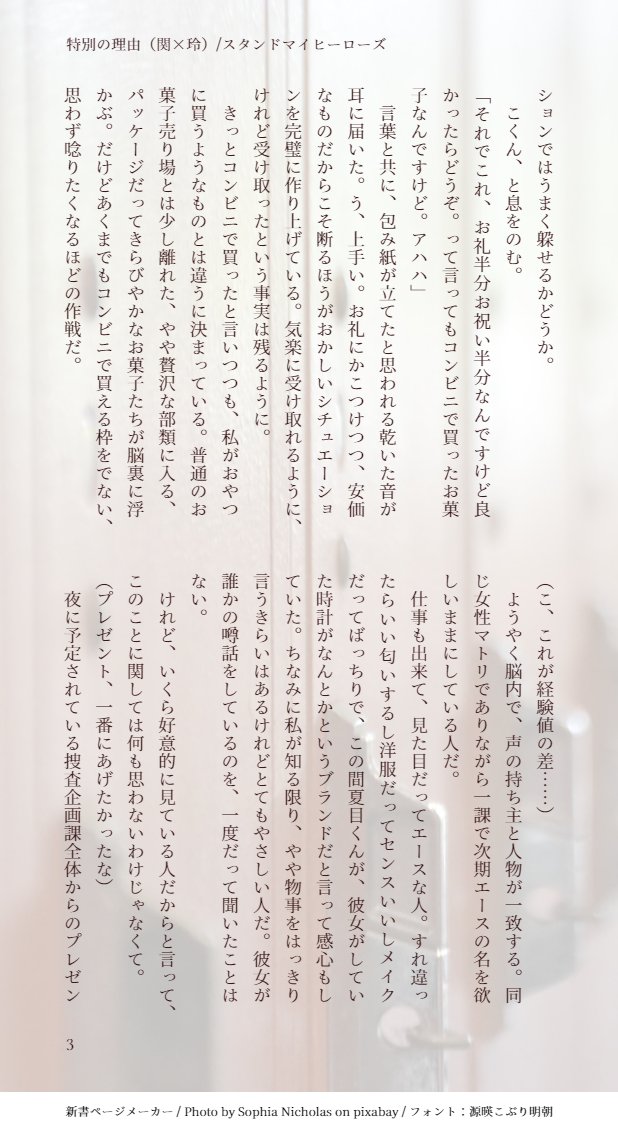 特別の理由（関×玲）/スタンドマイヒーローズ
ションではうまく躱せるかどうか。
　こくん、と息をのむ。
「それでこれ、お礼半分お祝い半分なんですけど良
かったらどうぞ。って言ってもコンビニで買ったお菓
子なんですけど。アハハ」
　言葉と共に、包み紙が立てたと思われる乾いた音が
耳に届いた。う、上手い。お礼にかこつけつつ、安価
なものだからこそ断るほうがおかしいシチュエーショ
ンを完璧に作り上げている。気楽に受け取れるように、
けれど受け取ったという事実は残るように。
　きっとコンビニで買ったと言いつつも、私がおやつ
に買うようなものとは違うに決まっている。普通のお
菓子売り場とは少し離れた、やや贅沢な部類に入る、
パッケージだってきらびやかなお菓子たちが脳裏に浮
かぶ。だけどあくまでもコンビニで買える枠をでない、
思わず唸りたくなるほどの作戦だ。
（こ、これが経験値の差……）
　ようやく脳内で、声の持ち主と人物が一致する。同
じ女性マトリでありながら一課で次期エースの名を欲
しいままにしている人だ。
　仕事も出来て、見た目だってエースな人。すれ違っ
たらいい匂いするし洋服だってセンスいいしメイク
だってばっちりで、この間夏目くんが、彼女がしてい
た時計がなんとかというブランドだと言って感心もし
ていた。ちなみに私が知る限り、やや物事をはっきり
言うきらいはあるけれどとてもやさしい人だ。彼女が
誰かの噂話をしているのを、一度だって聞いたことは
ない。
　けれど、いくら好意的に見ている人だからと言って、
このことに関しては何も思わないわけじゃなくて。
（プレゼント、一番にあげたかったな）
　夜に予定されている捜査企画課全体からのプレゼン
3
新書ページメーカー / Photo by Sophia Nicholas on pixabay / フォント：源暎こぶり明朝